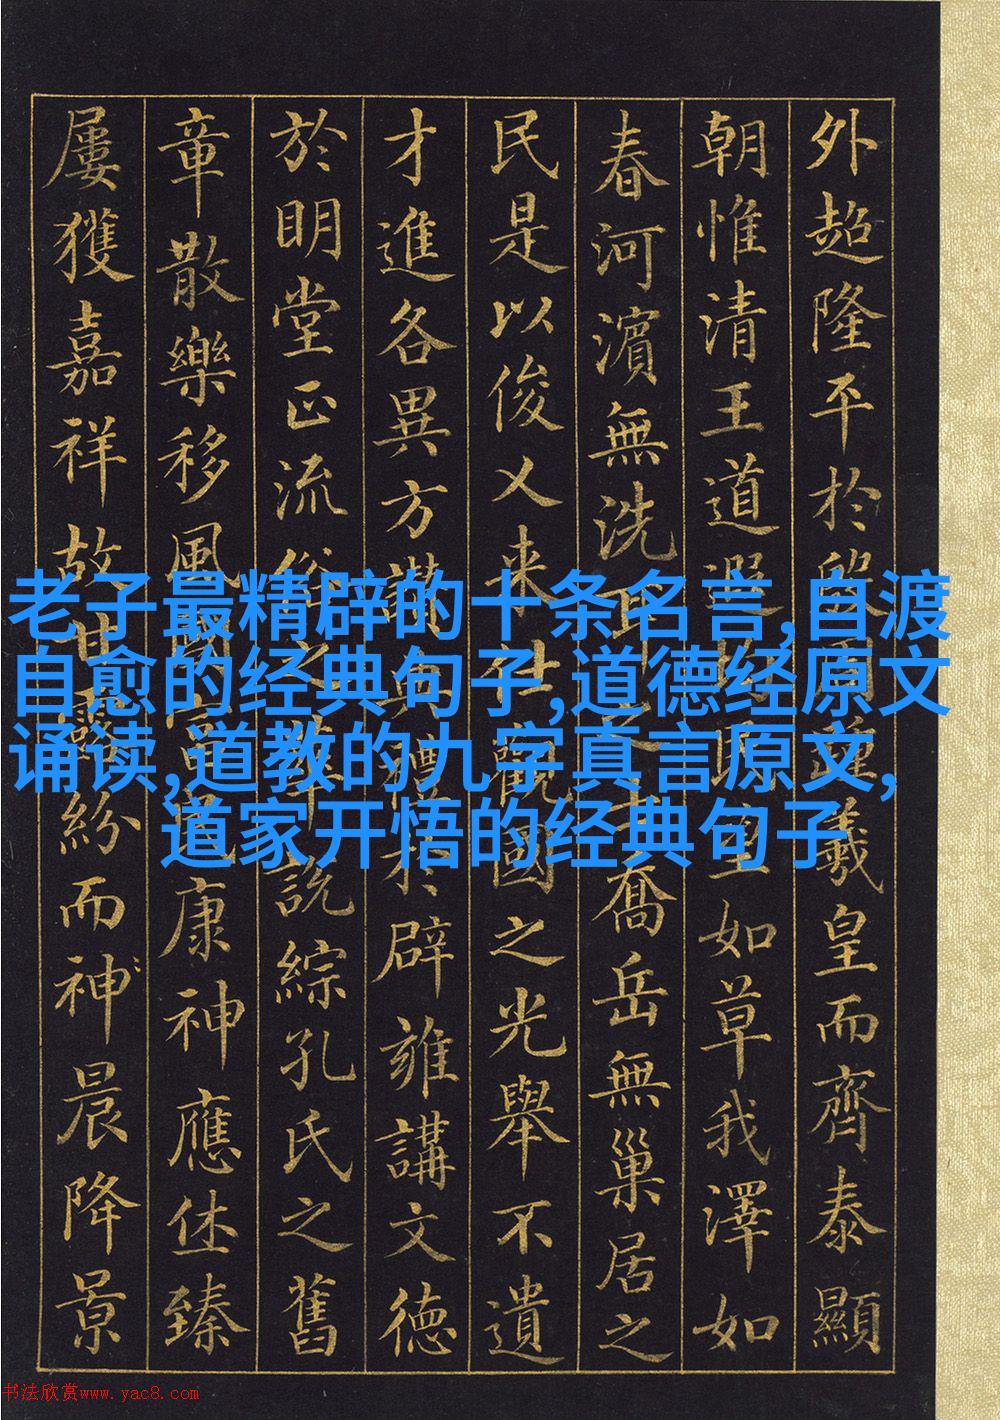 外超隆平於殷周踵羲皇而齊泰顯
朝惟清王道遐如草我澤如
春河濱無洗耳之士喬岳無巢居之
民是以俊乂来仕觀國之光舉不遺
才進各異方於辟雍講文德
於明堂正流俗之華說綜孔氏之舊
章散樂移風國康神應休臻
屢獲嘉祥故甘靈紛而神晨降景
老子最精辟的十条名言,自渡
自愈的经典句子,道德经原文
诵读,道教的九字真言原文,
道家开悟的经典句子
书法欣赏www.yac8.com